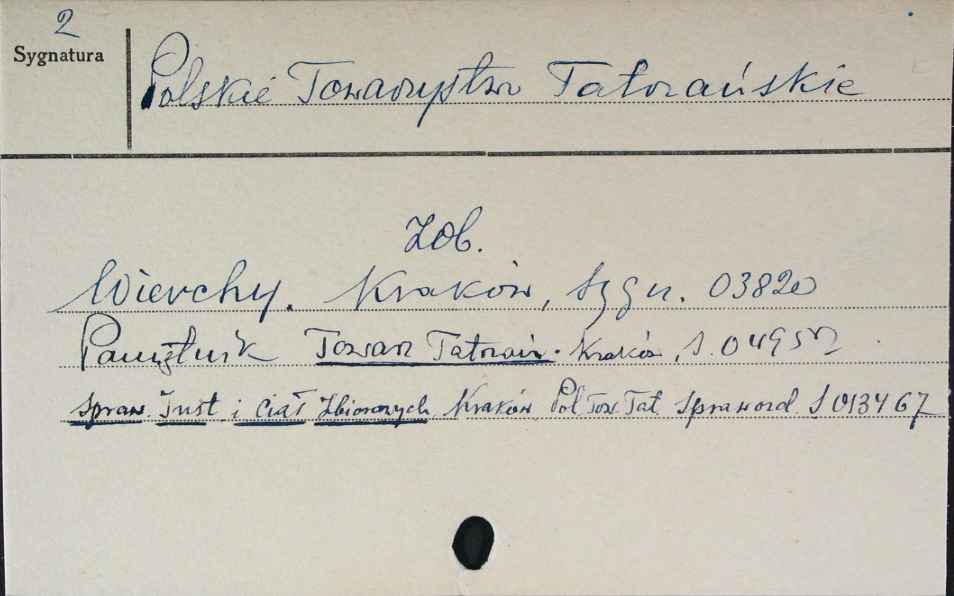 2
Sygnatura
Polskie Towarzystw Tatrzańskie
Zob.
Wierchy. Kraków, Sygn. 03820
Pamiętnik Towarz Tatrzań. Kraków, S.
Spraw. Inst i Ciał Zbiorowych Kraków Pol Tow. Tat Sprawozd. S 013467